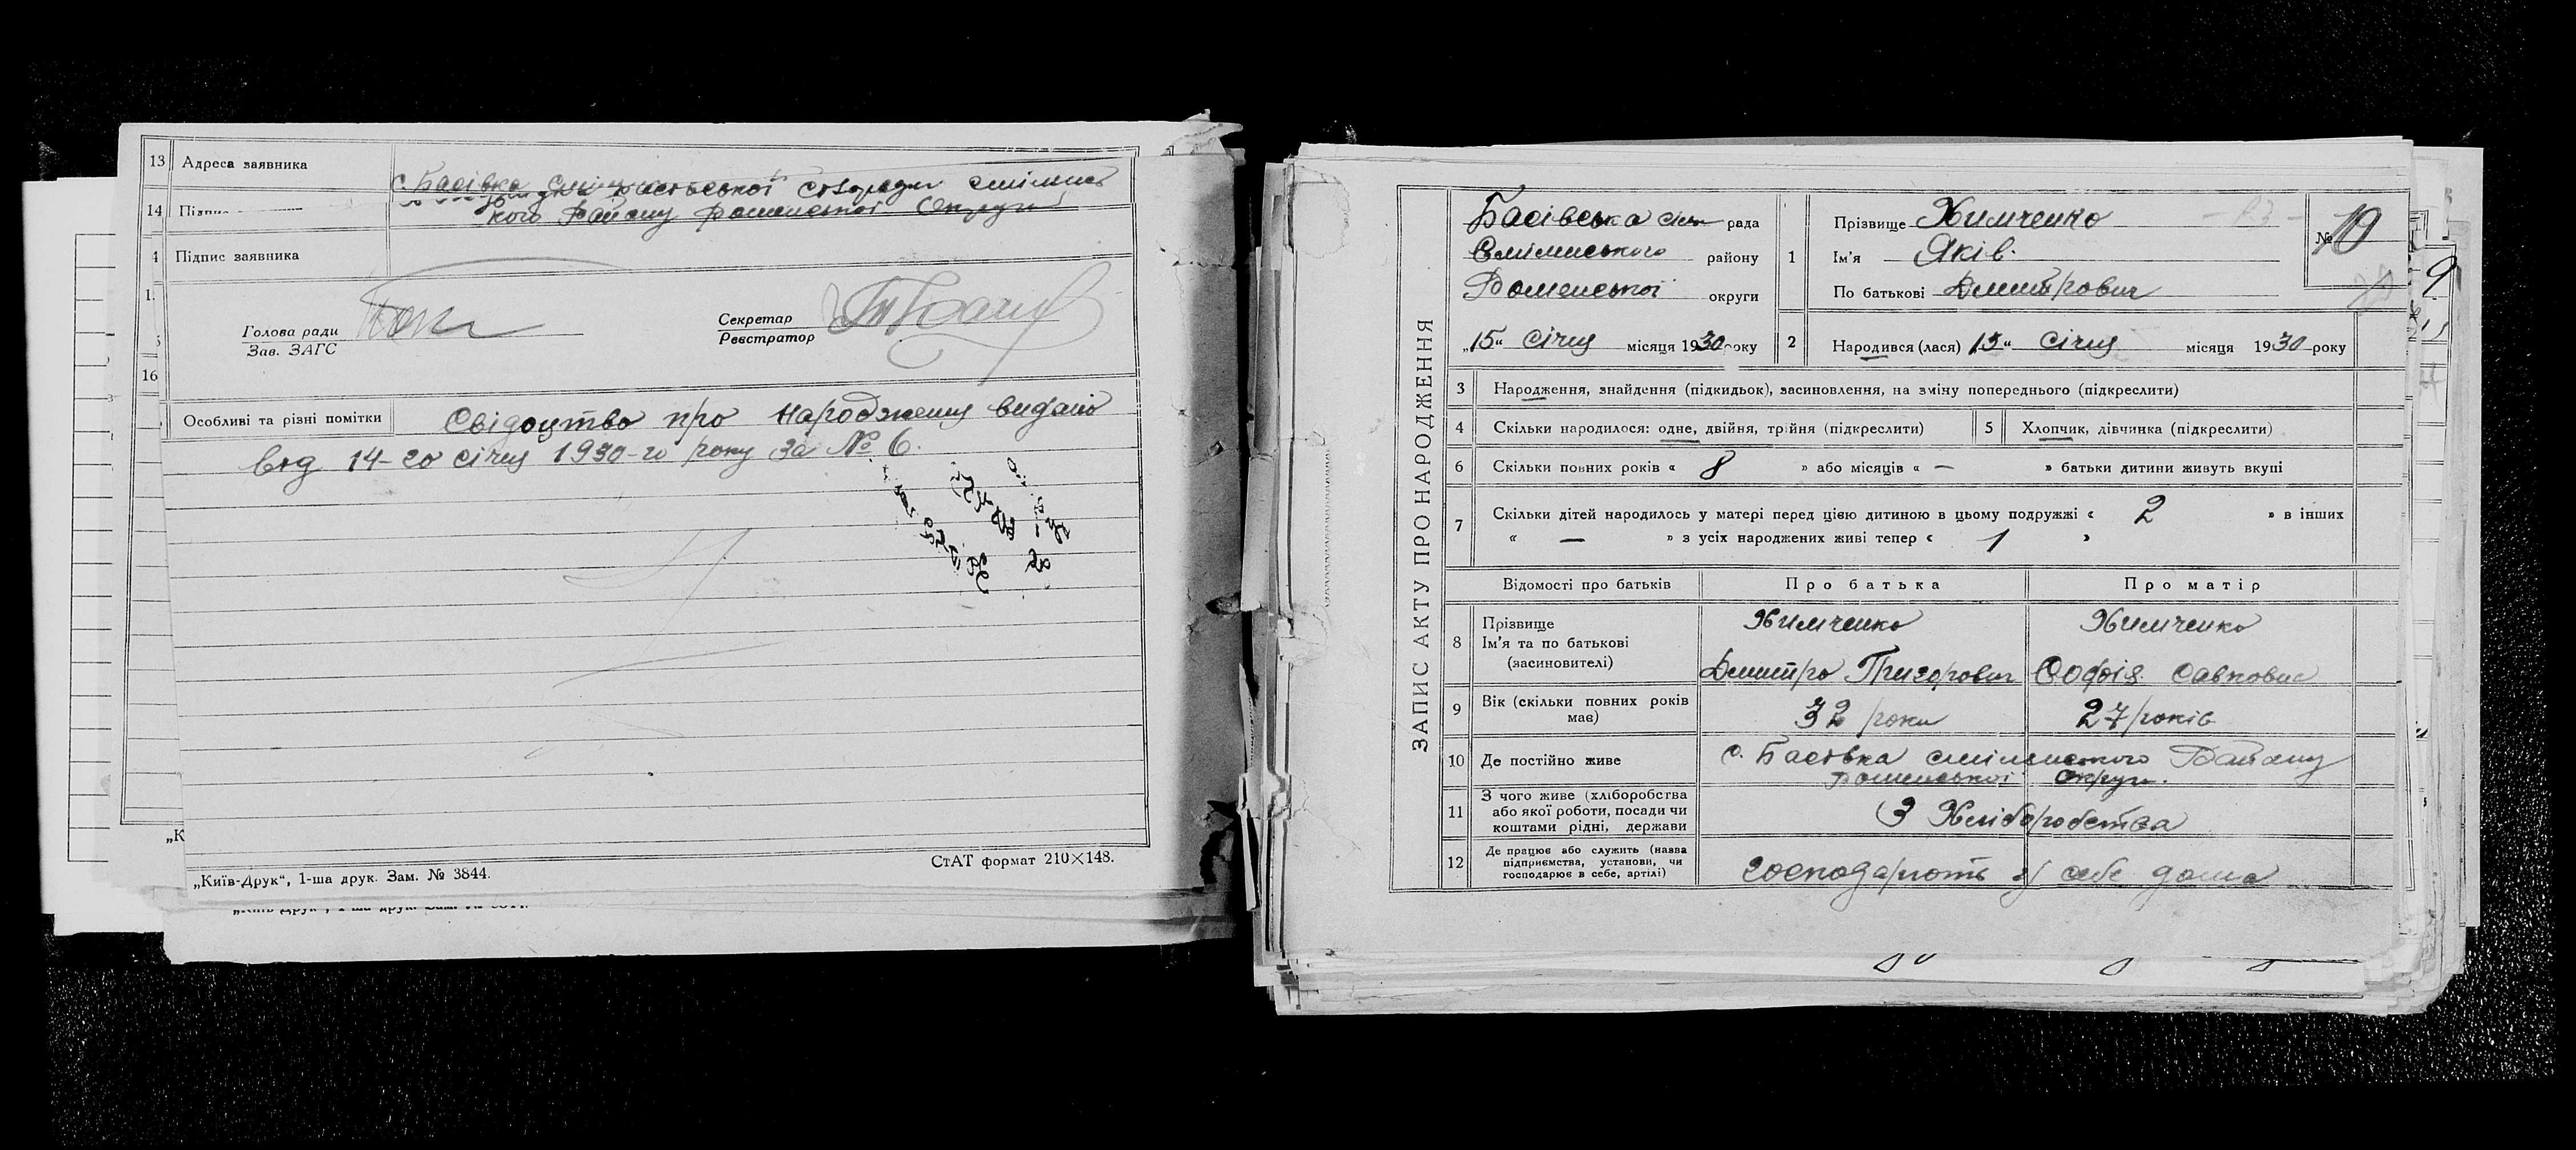 13 Адреса заявника
с. Басівка
14
кого Району Роменської Округи
4 Підпис заявника
Голова ради
Зав. ЗАГС
Секретар
Реєстратор
16
Особливі та різні помітки Свідоцтво про народження видано
від 14-го січня 1930-го року за № 6.
„Київ-Друк“, 1-ша друк. Зам. № 3844.
СтАТ формат 210×148.
ЗАПИС АКТУ ПРО НАРОДЖЕННЯ
Басівська сіль рада
Смілянського району
Роменської округи
„15“ січня місяця 1930 року
1 Прізвище Химченко
Ім'я Яків.
По батькові Дмитрович
№ 10
2 Народився (лася) 13“ січня місяця 1930 року
3 Народження, знайдення (підкидьок), засиновлення, на зміну попереднього (підкреслити)
4 Скільки народилося: одне, двійня, трійня (підкреслити)
5 Хлопчик, дівчинка (підкреслити)
6 Скільки повних років « 8 » або місяців « — » батьки дитини живуть вкупі
7 Скільки дітей народилось у матері перед цією дитиною в цьому подружжі « 2 » в інших
« — » з усіх народжених живі тепер « 1 »
Відомості про батьків Про батька Про матір
8 Прізвище Химченко Химченко
Ім'я та по батькові
(засиновителі) Дмитро Григорович Софія Савковна
9 Вік (скільки повних років має) 32 роки 27 років
10 Де постійно живе с. Басівка смілянського Району
Роменської Округи.
11 З чого живе (хліборобства
або якої роботи, посади чи
коштами рідні, держави З Хліборобства
12 Де працює або служить (назва
підприємства, установи, чи
господарює в себе, артілі) господарюють у себе дома